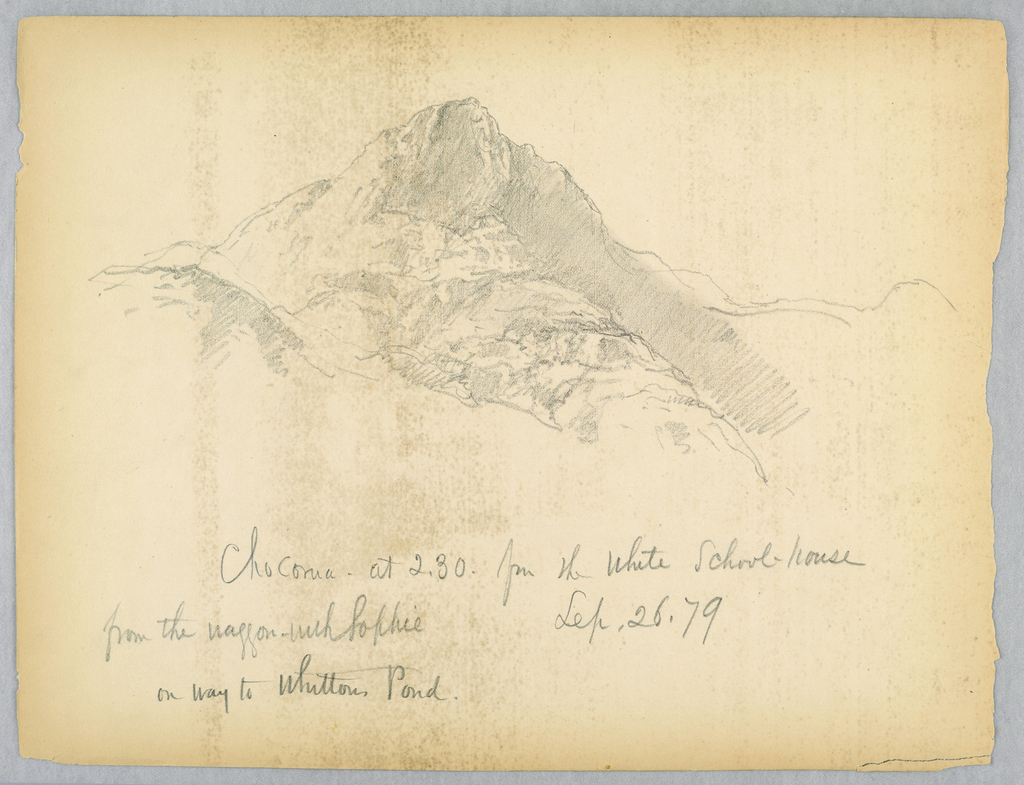 Chocorua - at 2.30. from the White School-house
from the waggon - with Sophie
Sep. 26. 79
on way to Whittons Pond.